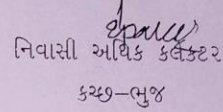 નિવાસી અધિક કલેકટર
કચ્છ-ભુજ